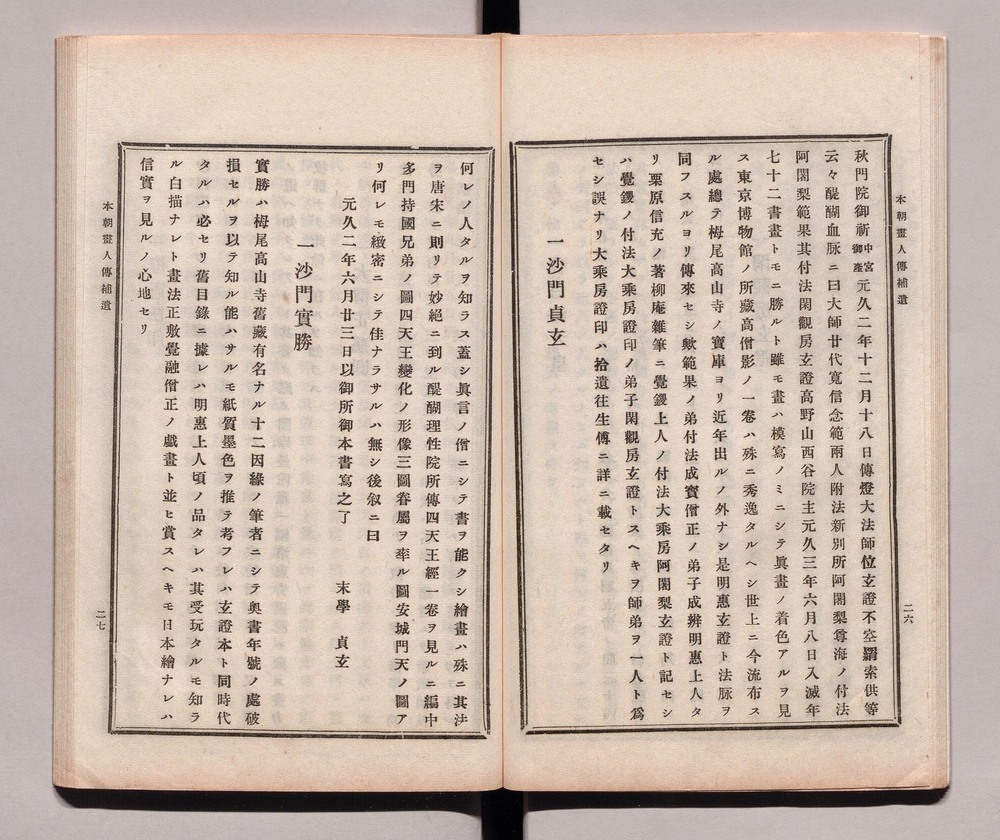 本朝畫人傳補遺
秋門院御祈中宮御產元久二年十二月十八日傳燈大法師位玄證不空羂索供等
云々醍醐血脉ニ曰大師廿代寬信念範兩人附法新別所阿闍梨尊海ノ付法
阿闍梨範果其付法閑觀房玄證高野山西谷院主元久三年六月八日入滅年
七十二書畫トモニ勝ルト雖モ畫ハ模寫ノミニシテ眞畫ノ着色アルヲ見
ス東京博物館ノ所藏高僧影ノ一卷ハ殊ニ秀逸タルヘシ世上ニ今流布ス
ル處總テ栂尾高山寺ノ寶庫ヨリ近年出ルノ外ナシ是明惠玄證ト法脉ヲ
同フスルヨリ傳來セシ歟範果ノ弟付法成寶僧正ノ弟子成辨明惠上人タ
リ栗原信充ノ著柳庵雜筆ニ覺鑁上人ノ付法大乘房阿闍梨玄證ト記セシ
ハ覺鑁ノ付法大乘房證印ノ弟子閑觀房玄證トスヘキヲ師弟ヲ一人ト爲
セシ誤ナリ大乘房證印ハ拾遺往生傳ニ詳ニ載セタリ
一沙門貞玄
二六
何レノ人タルヲ知ラス蓋シ眞言ノ僧ニシテ書ヲ能クシ繪畫ハ殊ニ其法
ヲ唐宋ニ則リテ妙絕ニ到ル醍醐理性院所傳四天王經一卷ヲ見ルニ編中
多門持國兄弟ノ圖四天王變化ノ形像三圖眷屬ヲ率ル圖安城門天ノ圖ア
リ何レモ緻密ニシテ佳ナラサルハ無シ後叙ニ曰
元久二年六月廿三日以御所御本書寫之了 末學 貞玄
一沙門實勝
實勝ハ栂尾高山寺舊藏有名ナル十二因緣ノ筆者ニシテ奥書年號ノ處破
損セルヲ以テ知ル能ハサルモ紙質墨色ヲ推テ考フレハ玄證本ト同時代
タルハ必セリ舊目錄ニ據レハ明惠上人頃ノ品タレハ其受玩タルモ知ラ
ル白描ナレト畫法正敷覺融僧正ノ戲畫ト並ヒ賞スヘキモ日本繪ナレハ
信實ヲ見ルノ心地セリ
本朝畫人傳補遺
二七